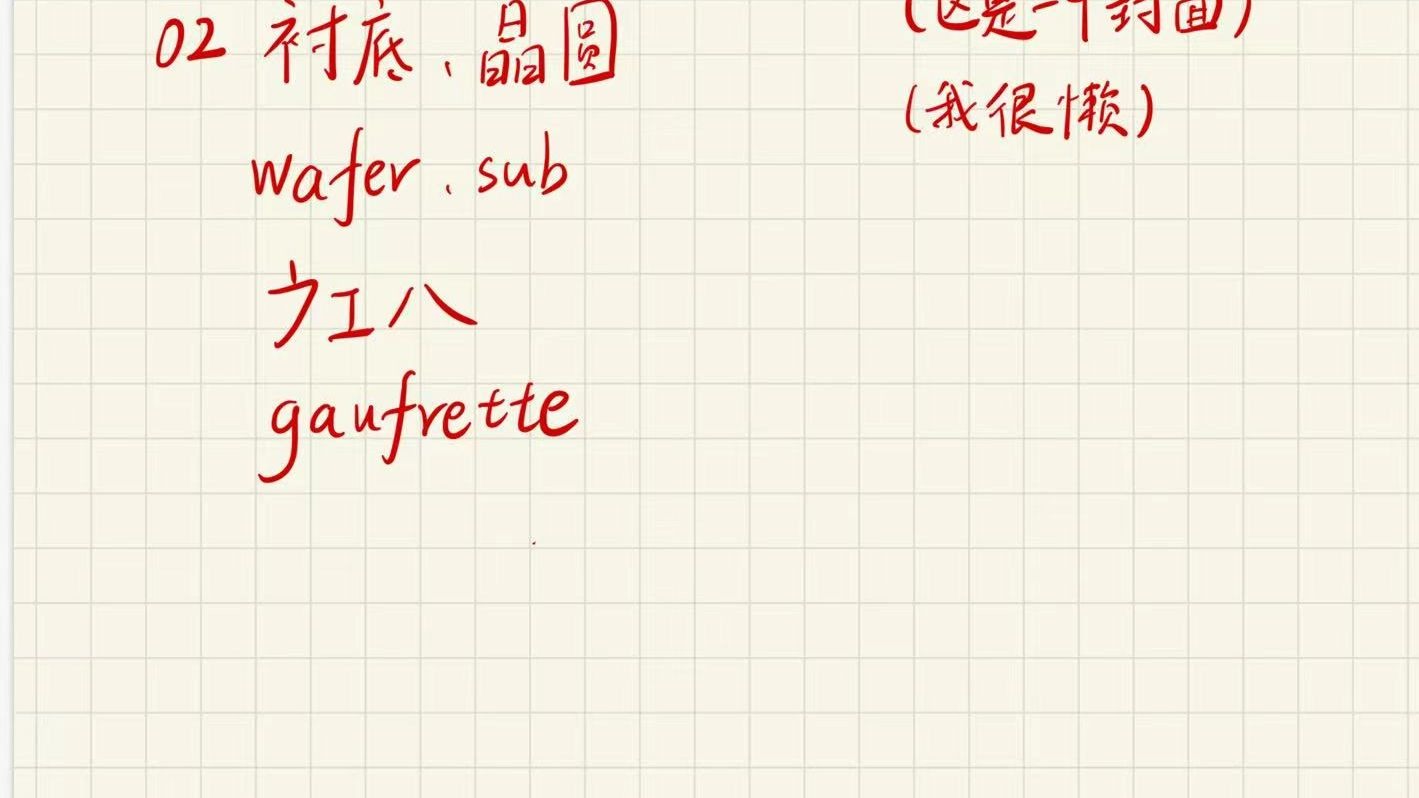 02 衬底、晶圆
wafer、sub
ウエハ
gaufrette
(这是一个封面)
(我很懒)